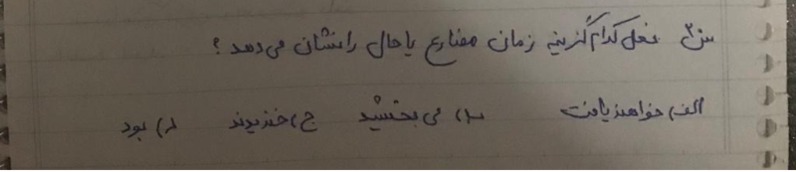 س۳ فعل کدام گزینه زمان مضارع یا حال را نشان می‌دهد ؟
الف) خواهند یافت ب) می‌بخشید ج) خندیدند د) بود